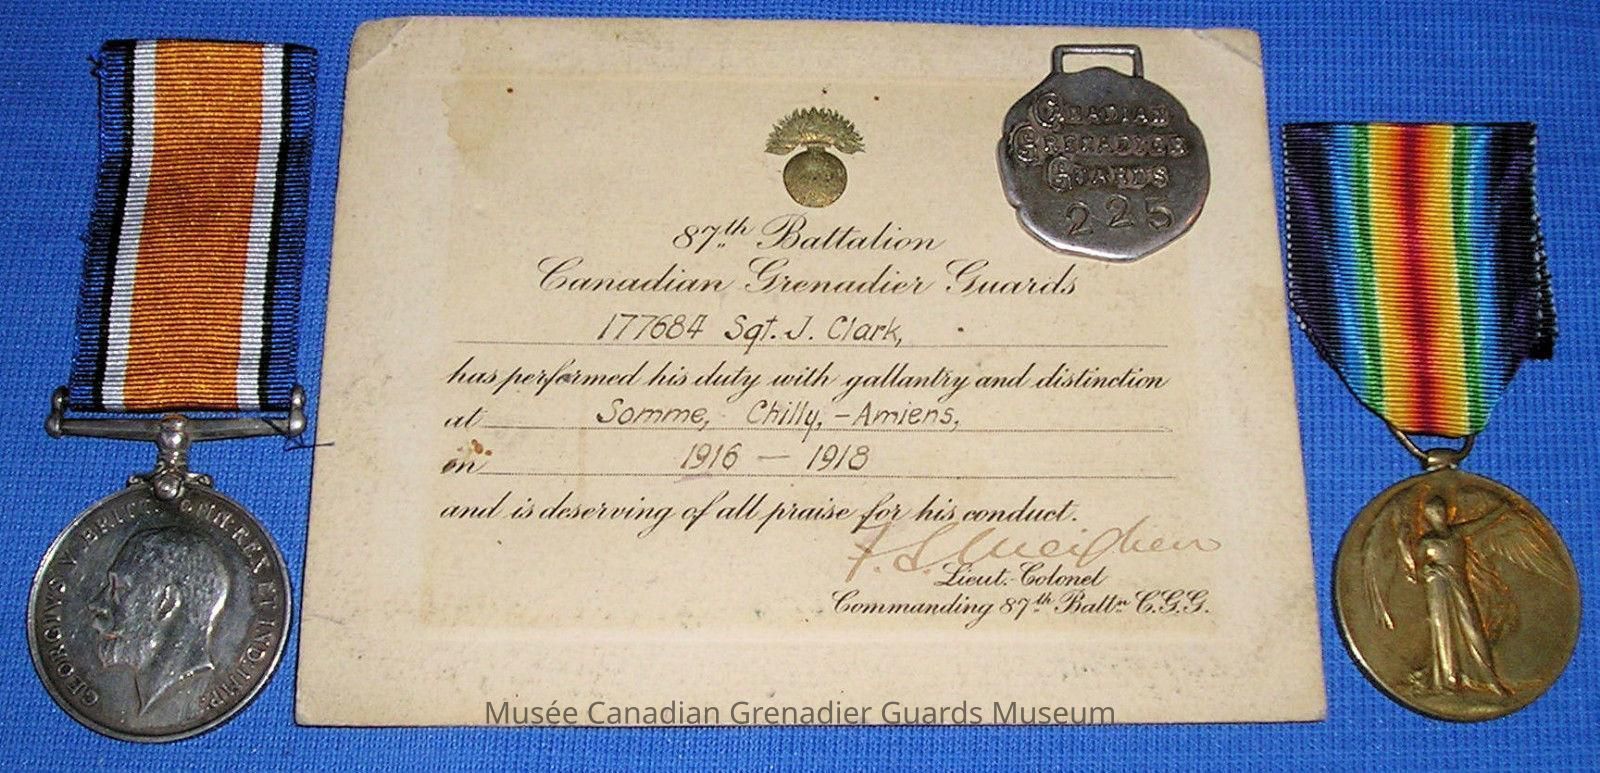 GEORGIVS V BRITT: OMN: REX ET IND: IMP:
CANADIAN
GRENADIER
GUARDS
225
87th Battalion
Canadian Grenadier Guards
177684 Sgt. J. Clark,
has performed his duty with gallantry and distinction
at Somme, Chilly, - Amiens,
on 1916 — 1918
and is deserving of all praise for his conduct.
F. S. Meighen
Lieut.-Colonel
Commanding 87th Battn C.G.G.
Musée Canadian Grenadier Guards Museum